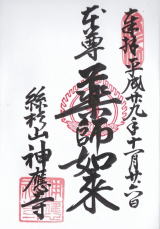 奉拝 平成廿九年十一月廿六日
本尊
薬師如来
糸杉山 神應寺